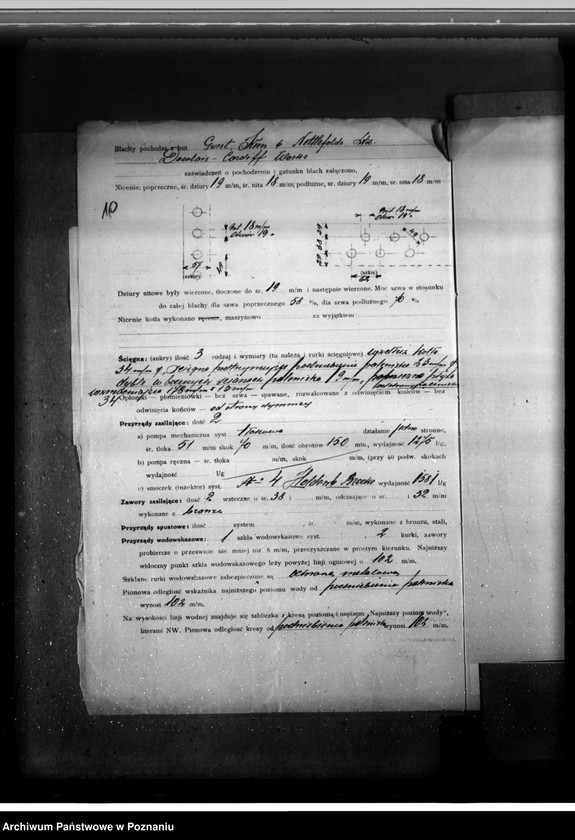 Blachy pochodzą z hut Guest, Keen & Nettlefolds Ltd.
Dowlais-Cardiff Works
zaświadczeń o pochodzeniu i gatunku blach załączono.
Nicenie; poprzeczne, śr. dziury 19 m/m, śr. nita 18 m/m; podłużne, śr. dziury 19 m/m, śr. nita 18 m/m
10
Nit 18 m/m
Otwór 19
Nit 18 m/m
Otwór 19
(szkic)
(szkic)
62
Dziury nitowe były wiercone, tłoczone do śr. 19 m/m i następnie wiercone. Moc szwa w stosunku
do całej blachy dla szwa poprzecznego 58 %, dla szwa podłużnego 70 %.
Nicenie kotła wykonano ręcznie, maszynowo za wyjątkiem
Ścięgna: (ankry) ilość 3 rodzaj i wymiary (tu należą i rurki ścięgniowe)
34 m/m
19 m/m,
Opłomki — płomieniówki — bez szwa — spawane, rozwalcowane z odwinięciem końców — bez
odwinięcia końców — od strony dymnicy
Przyrządy zasilające: ilość 2
a) pompa mechaniczna syst. tłokowa działanie jedno stronne,
śr. tłoka 51 m/m skok 70 m/m, ilość obrotów 150 min., wydajność 1275 l/g,
b) pompa ręczna — śr. tłoka m/m, skok m/m, (przy 40 podw. skokach
wydajność l/g
c) smoczek (inżektor) syst. № 4 wydajność 1581 l/g,
Zawory zasilające: ilość 2 wsteczne o śr. 38 i m/m, odcinające o śr. i 32 m/m
wykonane z bronzu
Przyrządy spustowe: ilość system śr. m/m, wykonane z bronzu, stali,
Przyrządy wodowskazowe: 1 szkła wodowskazowe syst. 2 kurki, zawory
probiercze o przewicie nie mniej niż 8 m/m, przeczyszczane w prostym kierunku. Najniższy
widoczny punkt szkła wodowskazowego leży powyżej linji ogniowej o 102 m/m.
Szklane rurki wodowskazowe zabezpieczone są ochroną metalową
Pionowa odległość wskaźnika najniższego poziomu wody od podniebienia paleniska
wynosi 102 m/m.
Na wysokości linji wodnej znajduje się tabliczka z kresą poziomą i napisem „Najniższy poziom wody",
literami NW. Pionowa odległość kresy od podniebienia paleniska wynosi 102 m/m.
Archiwum Państwowe w Poznaniu